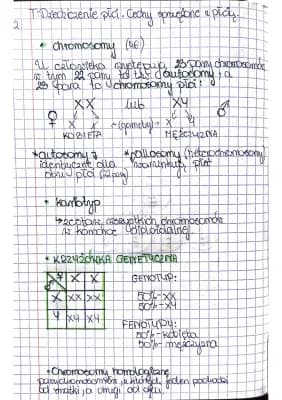 T: Dziedziczenie płci. Cechy sprzężone z płcią.
2.
• chromosomy (46)
U człowieka występują 23 pary chromosomów
w tym 22 pary to tzw. autosomy, a
23 para to chromosomy płci:
XX lub XY
♀ X X -(gamety)- X Y ♂
KOBIETA MĘŻCZYZNA
*autosomy *allosomy (heterochromosomy)
identyczne dla warunkują płeć
obu płci (22 pary)
• kariotyp
→ zestaw wszystkich chromosomów
w komórce diploidalnej
• KRZYŻÓWKA GENETYCZNA
X X GENOTYP:
X XX XX 50%-XX
Y XY XY 50%-XY
FENOTYPY:
50%-kobieta
50%-mężczyzna
• Chromosomy homologiczne
para chromosomów, z których jeden pochodzi
od matki, a drugi od ojca.